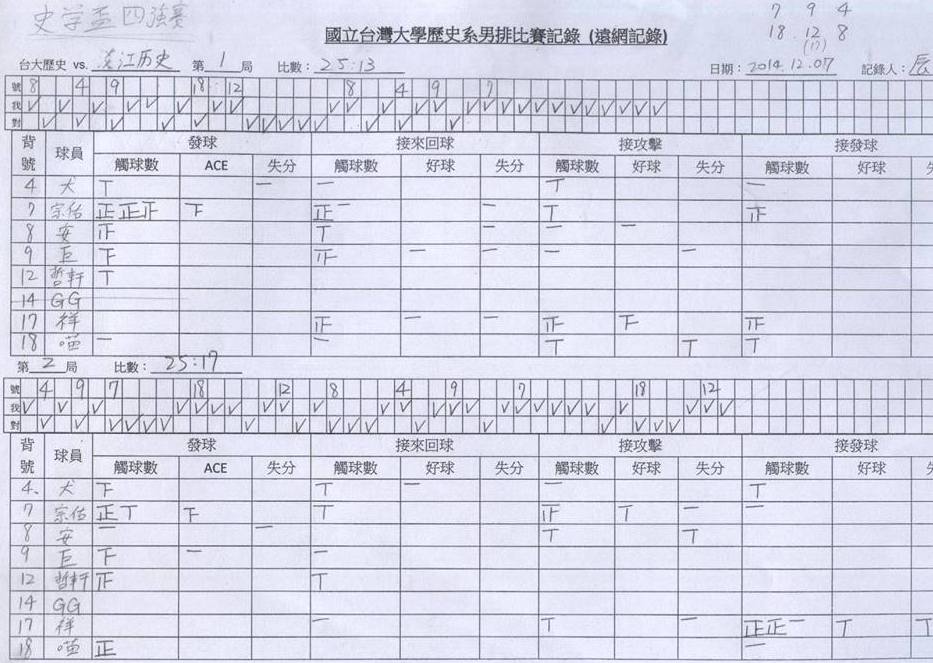 史学盃 四強賽
7 9 4
18 12 8
(17)
國立台灣大學歷史系男排比賽記錄 (遠網記錄)
台大歷史 vs. 淡江历史 第 1 局 比數： 25:13 日期：2014.12.07 記錄人：辰
號 8 4 9 18 12 8 4 9 7
我 ✓ ✓ ✓ ✓ ✓ ✓ ✓ ✓ ✓ ✓ ✓ ✓ ✓ ✓ ✓ ✓ ✓ ✓ ✓ ✓ ✓ ✓ ✓ ✓ ✓
對 ✓ ✓ ✓ ✓ ✓ ✓ ✓ ✓ ✓ ✓ ✓ ✓ ✓
背號 球員 發球 接來回球 接攻擊 接發球
觸球數 ACE 失分 觸球數 好球 失分 觸球數 好球 失分 觸球數 好球
4 犬 丅 一 一 丅 一
7 宗佑 正正正 下 正一 一 丅 正
8 安 正 丅 一 一 一
9 巨 下 正 一 一 一 一
12 哲軒 丅
14 GG
17 祥 正 一 一 正 下 正
18 喵 一 一 丅 丅 丅
第 2 局 比數： 25:17
號 4 9 7 18 12 8 4 9 7 18 12
我 ✓ ✓ ✓ ✓ ✓ ✓ ✓ ✓ ✓ ✓ ✓ ✓ ✓ ✓ ✓ ✓ ✓ ✓ ✓ ✓ ✓ ✓ ✓ ✓ ✓
對 ✓ ✓ ✓ ✓ ✓ ✓ ✓ ✓ ✓ ✓ ✓ ✓ ✓ ✓ ✓ ✓ ✓
背號 球員 發球 接來回球 接攻擊 接發球
觸球數 ACE 失分 觸球數 好球 失分 觸球數 好球 失分 觸球數 好球 失分
4、 犬 下 丅 一 一 丅
7 宗佑 正丅 下 丅 正 丅 一 一
8 安 一 一 丅 丅
9 巨 下 一 一
12 哲軒 正 丅
14 GG
17 祥 一 丅 一 正正一 丅 丅
18 喵 正 一